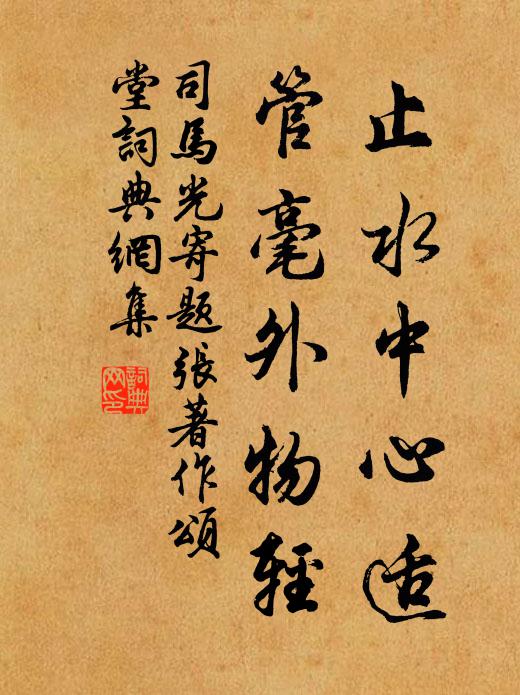 止水中心适
管毫外物輕
司馬光寄題張著作頌
堂詞典網集
詞典
网印